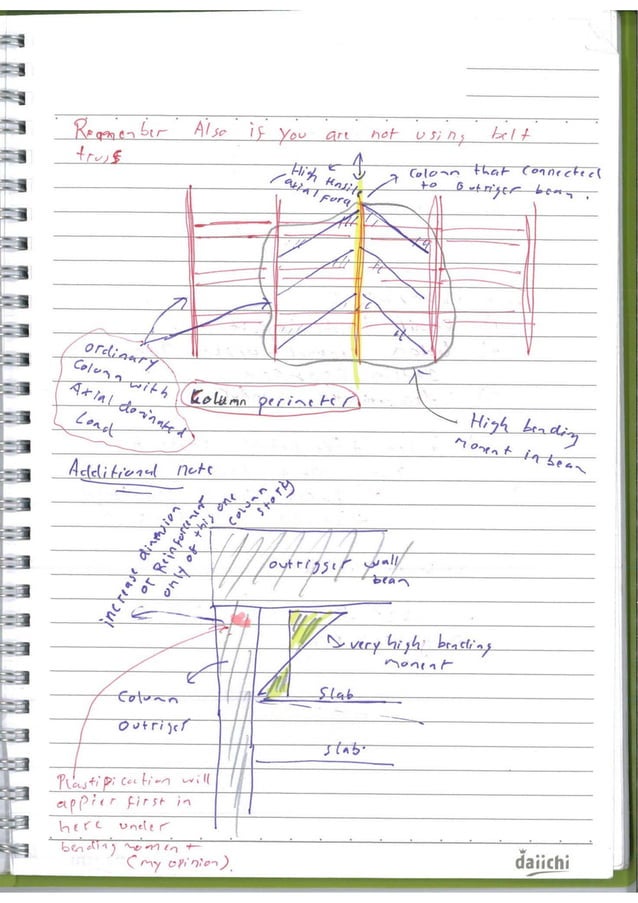 Remember Also if you are not using belt
truss
High tensile
axial force
Column that connected
to Outriger beam.
ordinary
Column with
Axial dominated
Load
Column perimeter
High bending
moment in beam
Additional note
increase dimension
or Reinforcement
only of this one
column story)
outrigger wall
beam
very high bending
moment
Slab
Column
outriger
slab.
Plastification will
appier first in
here under
bending moment
(my opinion).
daiichi